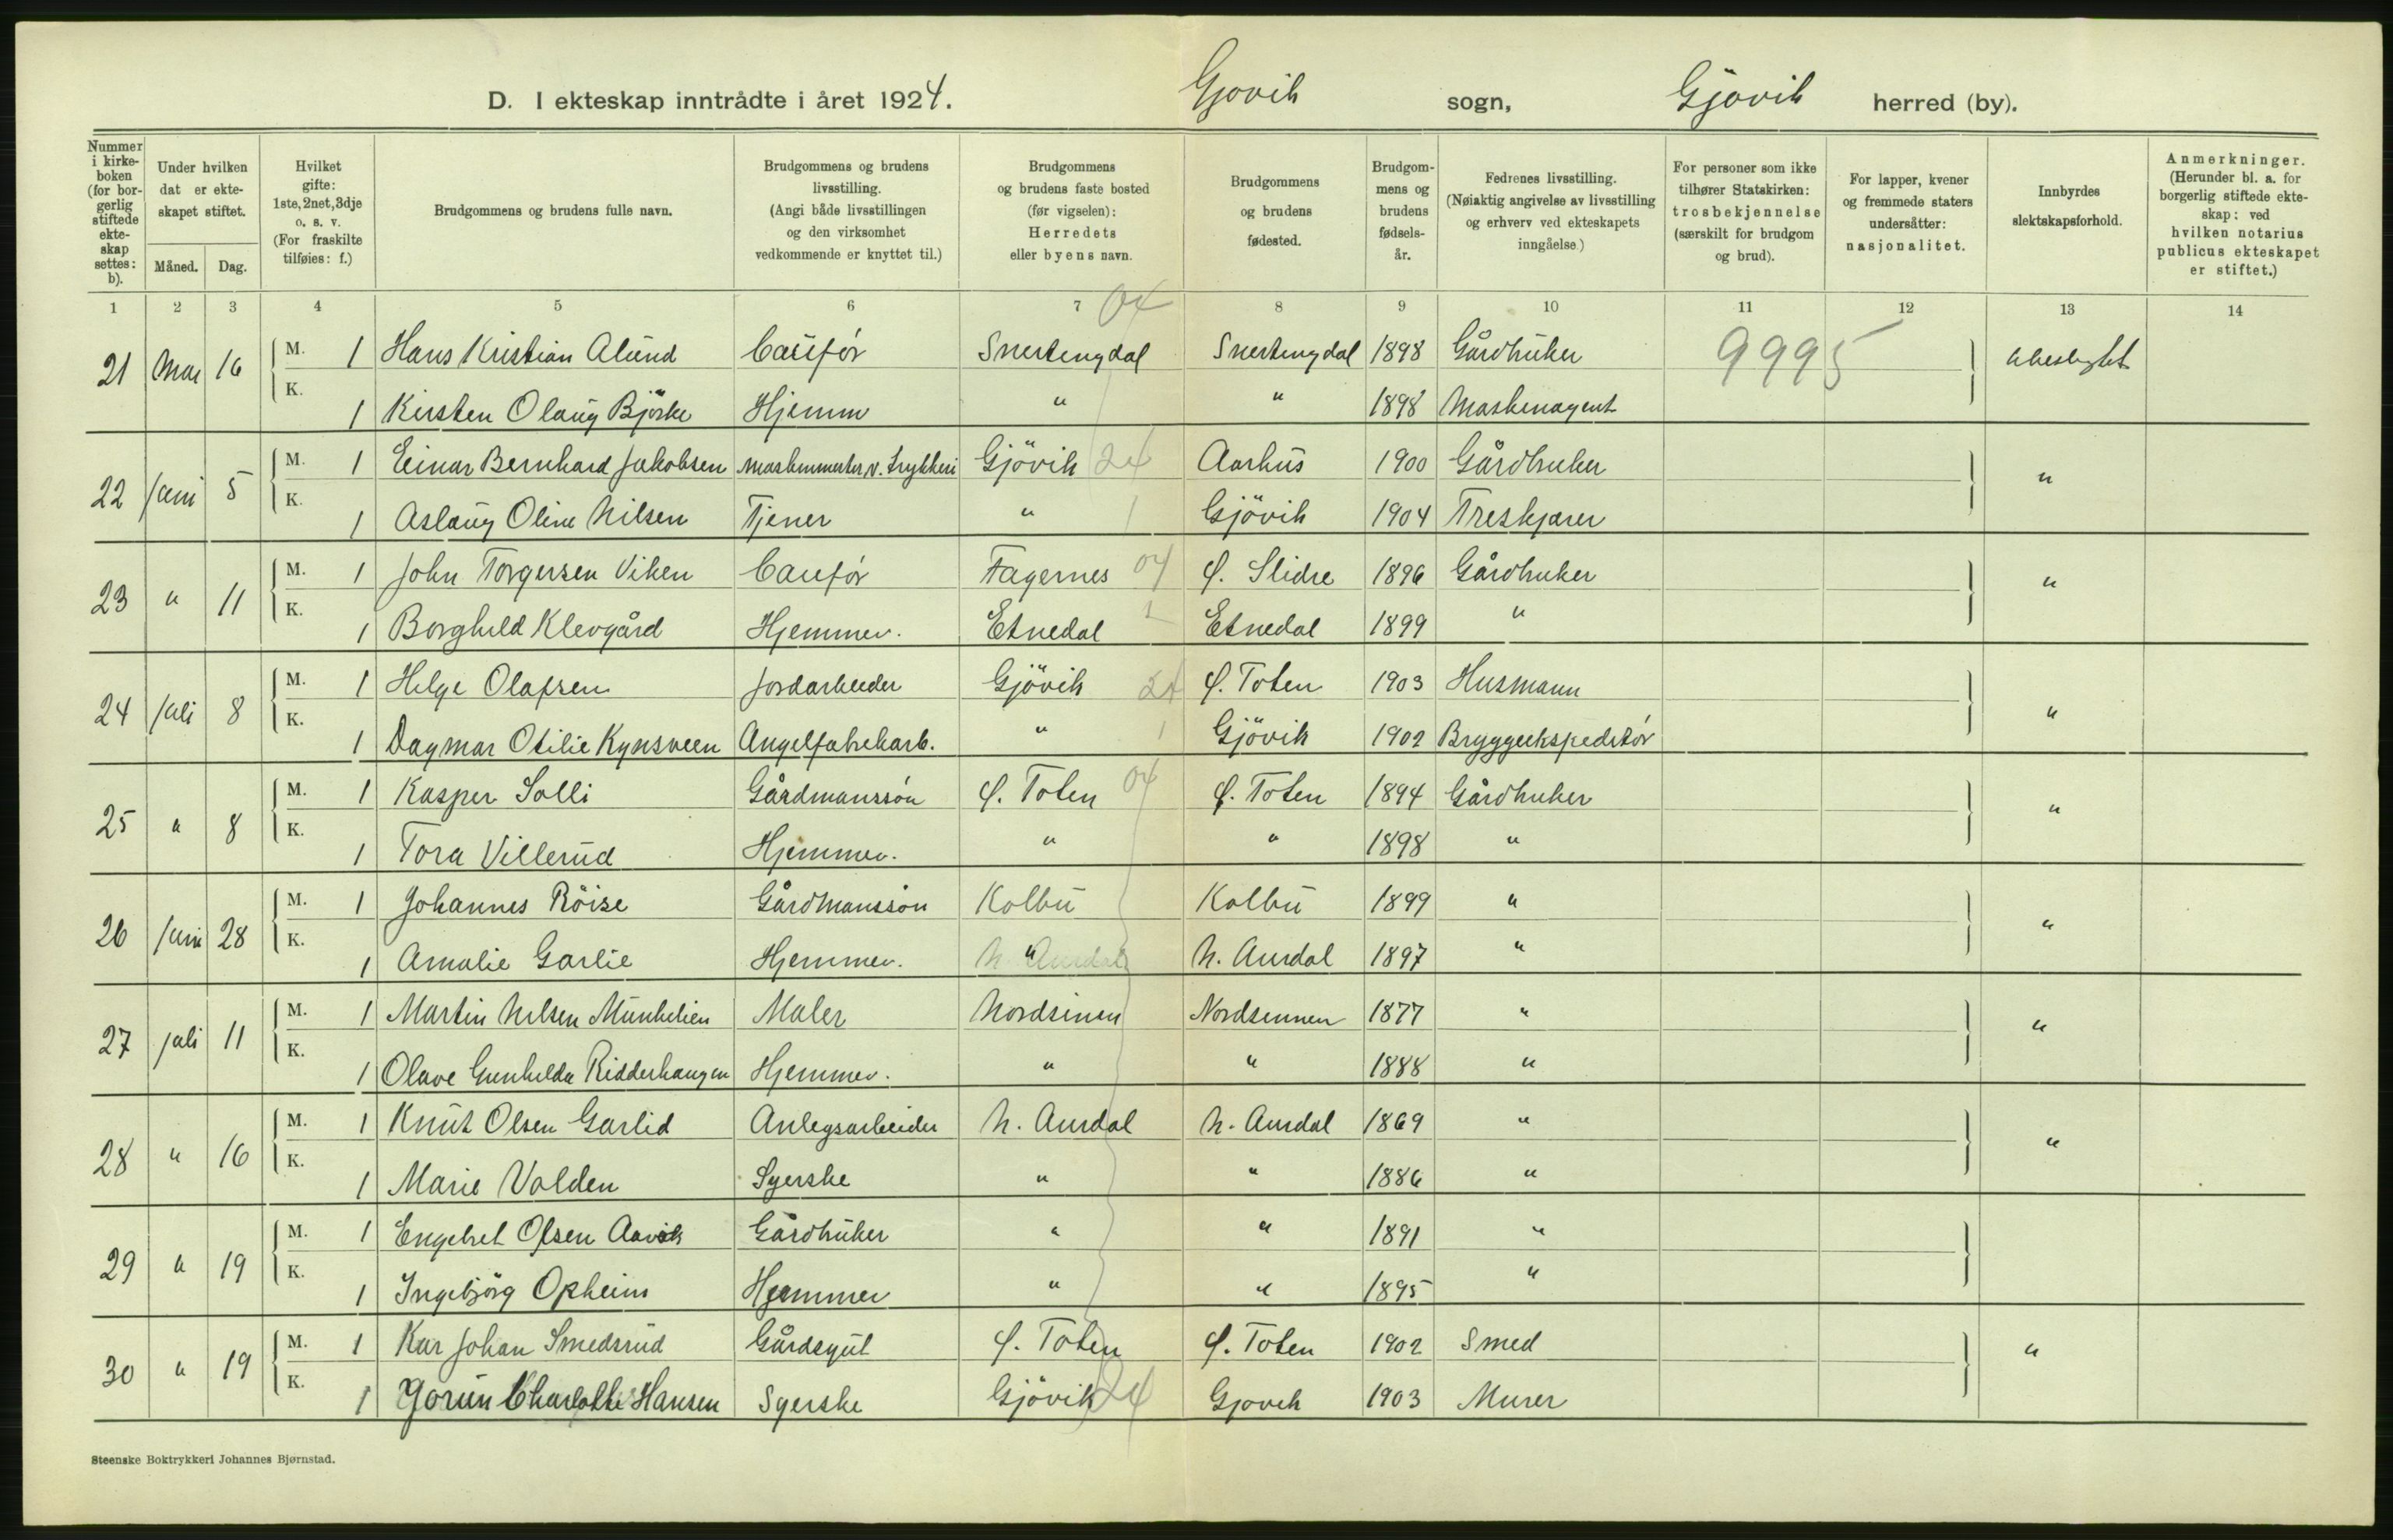 D. I ekteskap inntrådte i året 1924. Gjøvik sogn, Gjøvik herred (by).
Nummer i kirkeboken (for borgerlig stiftede ekteskap settes: b).
Under hvilken dat er ekteskapet stiftet.
Måned. Dag.
Hvilket gifte: 1ste, 2net, 3dje o. s. v. (For fraskilte tilføies: f.)
Brudgommens og brudens fulle navn.
Brudgommens og brudens livsstilling. (Angi både livsstillingen og den virksomhet vedkommende er knyttet til.)
Brudgommens og brudens faste bosted (før vigselen): Herredets eller byens navn.
Brudgommens og brudens fødested.
Brudgommens og brudens fødselsår.
Fedrenes livsstilling. (Nøiaktig angivelse av livsstilling og erhverv ved ekteskapets inngåelse.)
For personer som ikke tilhører Statskirken: trosbekjennelse (særskilt for brudgom og brud).
For lapper, kvener og fremmede staters undersåtter: nasjonalitet.
Innbyrdes slektskapsforhold.
Anmerkninger. (Herunder bl. a. for borgerlig stiftede ekteskap: ved hvilken notarius publicus ekteskapet er stiftet.)
1 2 3 4 5 6 7 8 9 10 11 12 13 14
04
21 Mai 16 M. 1 Hans Kristian Alund Caufør Snertengdal Snertengdal 1898 Gårdbruker 9995 Ubeslektet
K. 1 Kirsten Olaug Björke Hjemm " " 1898 Maskinagent
22 Juni 5 M. 1 Einar Bernhard Jakobsen Maskinmester v. Trykkeri Gjövik 24 Aarhus 1900 Gårdbruker "
K. 1 Aslaug Oline Nilsen Tjener " Gjövik 1904 Treskjærer
23 " 11 M. 1 John Torgersen Viken Caufør Fagernes 04 Ø. Slidre 1896 Gårdbruker "
K. 1 Borghild Klevgård Hjemmev. Etnedal Etnedal 1899 "
24 Juli 8 M. 1 Helge Olafsen Jordarbeider Gjövik 24 Ø. Toten 1903 Husmann "
K. 1 Dagmar Otilie Kynsveen Angelfabrikarb. " Gjövik 1902 Bryggeekspeditør
25 " 8 M. 1 Kasper Solli Gårdmanssøn Ø. Toten 04 Ø. Toten 1894 Gårdbruker "
K. 1 Tora Villerud Hjemmev. " " 1898 "
26 Juni 28 M. 1 Johannes Röise Gårdmanssøn Kolbu Kolbu 1899 " "
K. 1 Amalie Garlie Hjemmev. N. Aurdal N. Aurdal 1897 "
27 Juli 11 M. 1 Martin Nilsen Munkelien Maler Nordsinnen Nordsinnen 1877 " "
K. 1 Olave Gunhilda Ridderhaugen Hjemmev. " " 1888 "
28 " 16 M. 1 Knut Olsen Garlid Anlegsarbeider N. Aurdal N. Aurdal 1869 " "
K. 1 Marie Volden Syerske " " 1886 "
29 " 19 M. 1 Engebret Olsen Aavik Gårdbruker " " 1891 "
K. 1 Ingebjörg Opheim Hjemmev " " 1895 "
30 " 19 M. 1 Kar Johan Smedsrud Gårdsgut Ø. Toten Ø. Toten 1902 Smed "
K. 1 Jorun Charlotte Hansen Syerske Gjövik 24 Gjøvik 1903 Murer
Steenske Boktrykkeri Johannes Bjørnstad.